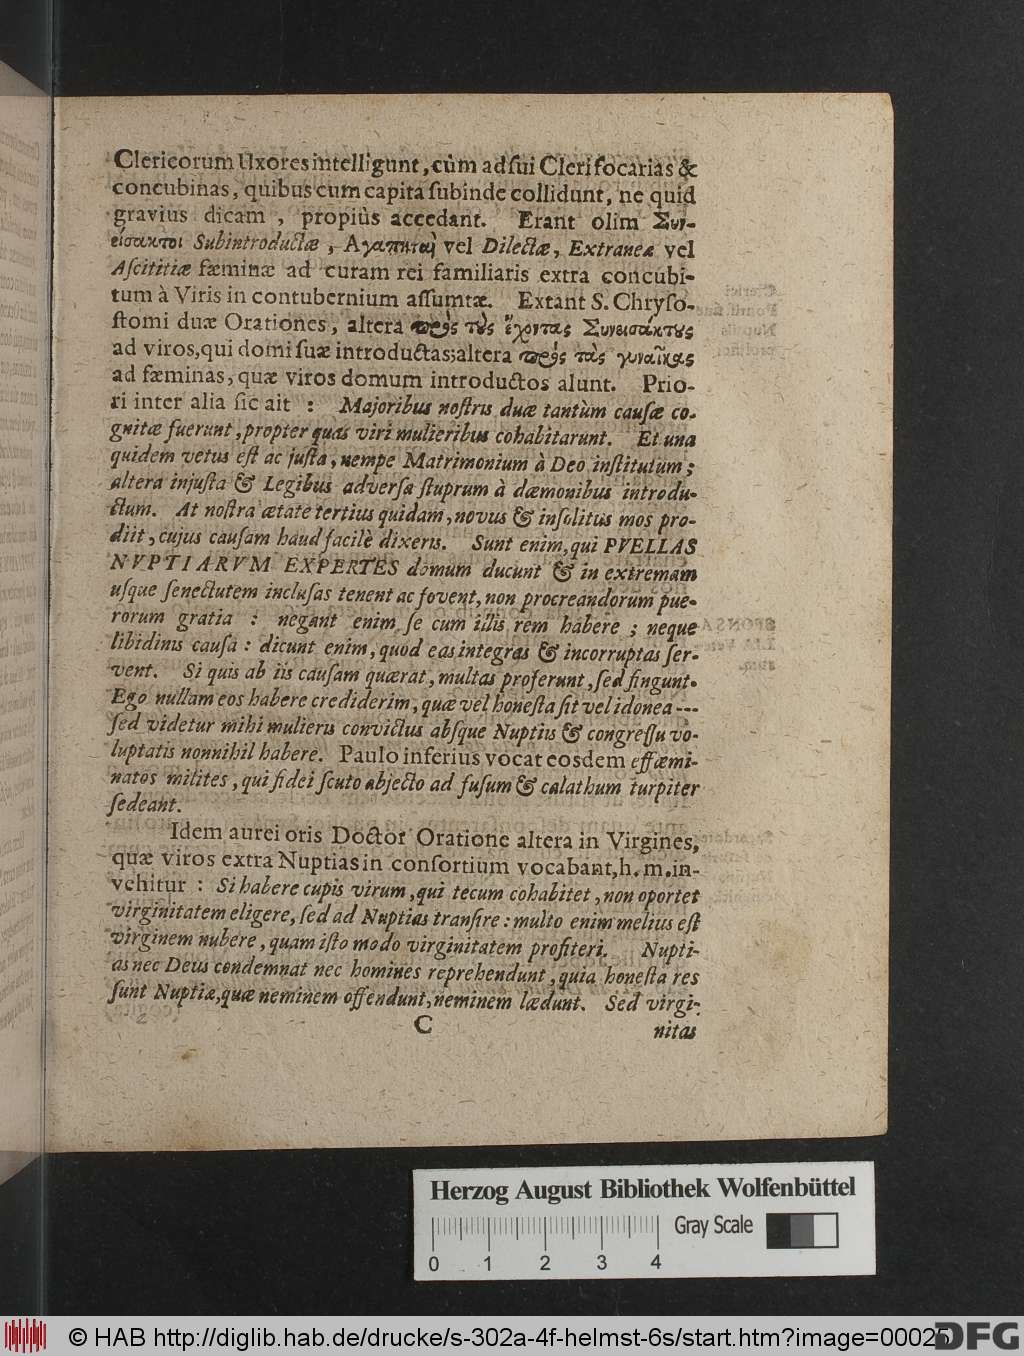 Clericorum Uxores intelligunt, cùm ad sui Cleri focarias &
concubinas, quibus cum capita subinde collidunt, ne quid
gravius dicam, propiùs accedant. Erant olim Συν-
είσακτοι Subintroductæ, Αγαπηταὶ vel Dilectæ, Extraneæ vel
Ascititiæ fæminæ ad curam rei familiaris extra concubi-
tum à Viris in contubernium assumtæ. Extant S. Chryso-
stomi duæ Orationes, altera πρὸς τοὺς ἔχοντας Συνεισάκτους
ad viros, qui domi suæ introductas; altera πρὸς τὰς γυναῖκας
ad fæminas, quæ viros domum introductos alunt. Prio-
ri inter alia sic ait : Majoribus nostris duæ tantùm causæ co-
gnitæ fuerunt, propter quas viri mulieribus cohabitarunt. Et una
quidem vetus est ac justa, nempe Matrimonium à Deo institutum;
altera injusta & Legibus adversa stuprum à dæmonibus introdu-
ctum. At nostra ætate tertius quidam, novus & insolitus mos pro-
diit, cujus causam haud facilè dixeris. Sunt enim, qui PVELLAS
NVPTIARVM EXPERTES domum ducunt & in extremam
usque senectutem inclusas tenent ac fovent, non procreandorum pue-
rorum gratia : negant enim se cum illis rem habere ; neque
libidinis causa : dicunt enim, quod eas integras & incorruptas ser-
vent. Si quis ab iis causam quærat, multas proferunt, sed fingunt.
Ego nullam eos habere crediderim, quæ vel honesta sit vel idonea ---
sed videtur mihi mulieris convictus absque Nuptiis & congressu vo-
luptatis nonnihil habere. Paulo inferius vocat eosdem effæmi-
natos milites, qui fidei scuto abjecto ad fusum & calathum turpiter
sedeant.
Idem aurei oris Doctor Oratione altera in Virgines,
quæ viros extra Nuptias in consortium vocabant, h. m. in-
vehitur : Si habere cupis virum, qui tecum cohabitet, non oportet
virginitatem eligere, sed ad Nuptias transire : multo enim melius est
virginem nubere, quam isto modo virginitatem profiteri. Nupti-
as nec Deus condemnat nec homines reprehendunt, quia honesta res
sunt Nuptiæ, quæ neminem offendunt, neminem lædunt. Sed virgi-
C nitas
Herzog August Bibliothek Wolfenbüttel
Gray Scale
0 1 2 3 4
© HAB http://diglib.hab.de/drucke/s-302a-4f-helmst-6s/start.htm?image=00025
DFG